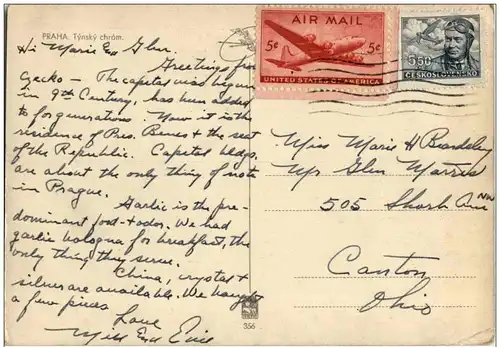 PRAHA. Týnský chrám.
Hi Marie and Glen.
Greetings from
Gecko - The capital was begun
in 9th Century, has been added
to for generations. Now it is the
residence of Pres. Benes & the seat
of the Republic. Capitol bldgs.
are about the only thing of note
in Prague.
Garlic is the pre-
dominant food & odor. We had
garlic bologna for breakfast, the
only thing they serve.
China, crystal &
silver are available. We bought
a few pieces
Love
AIR MAIL
5¢ 5¢
UNITED STATES OF AMERICA
5.50
ČESKOSLOVENSKO
Miss Marie H Beardsley
Mr Glen Marris
505 Shorb Ave NW
Canton
Ohio
356